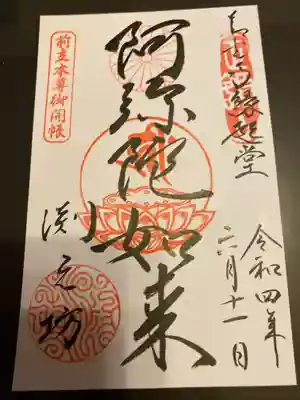 善光寺縁起堂
令和四年
六月十一日
阿弥陀如来
前立本尊御開帳
渕之坊